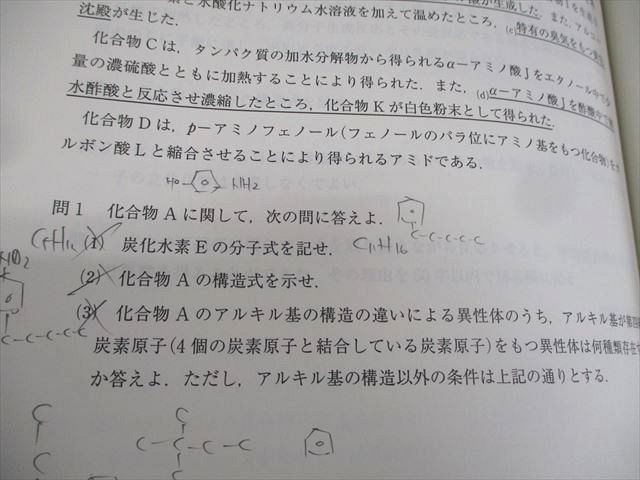 素と水酸化ナトリウム水溶液を加えて温めたところ，(c)特有の臭気をもつ
沈殿が生じた．
化合物Cは，タンパク質の加水分解物から得られるα-アミノ酸Jをエタノール中で
量の濃硫酸とともに加熱することにより得られた．また，(d)α-アミノ酸Jを酢酸中で無
水酢酸と反応させ濃縮したところ，化合物Kが白色粉末として得られた．
化合物Dは，p-アミノフェノール(フェノールのパラ位にアミノ基をもつ化合物)を
ルボン酸Lと縮合させることにより得られるアミドである．
HO NH2
問1 化合物Aに関して，次の問に答えよ．
C-C-C-C-C
(1) 炭化水素Eの分子式を記せ． C11H16
(2) 化合物Aの構造式を示せ．
NO2
(3) 化合物Aのアルキル基の構造の違いによる異性体のうち，アルキル基が第四級
C-C-C-C-C
炭素原子(4個の炭素原子と結合している炭素原子)をもつ異性体は何種類存在す
か答えよ．ただし，アルキル基の構造以外の条件は上記の通りとする．
C C
C-C-C-C
C C